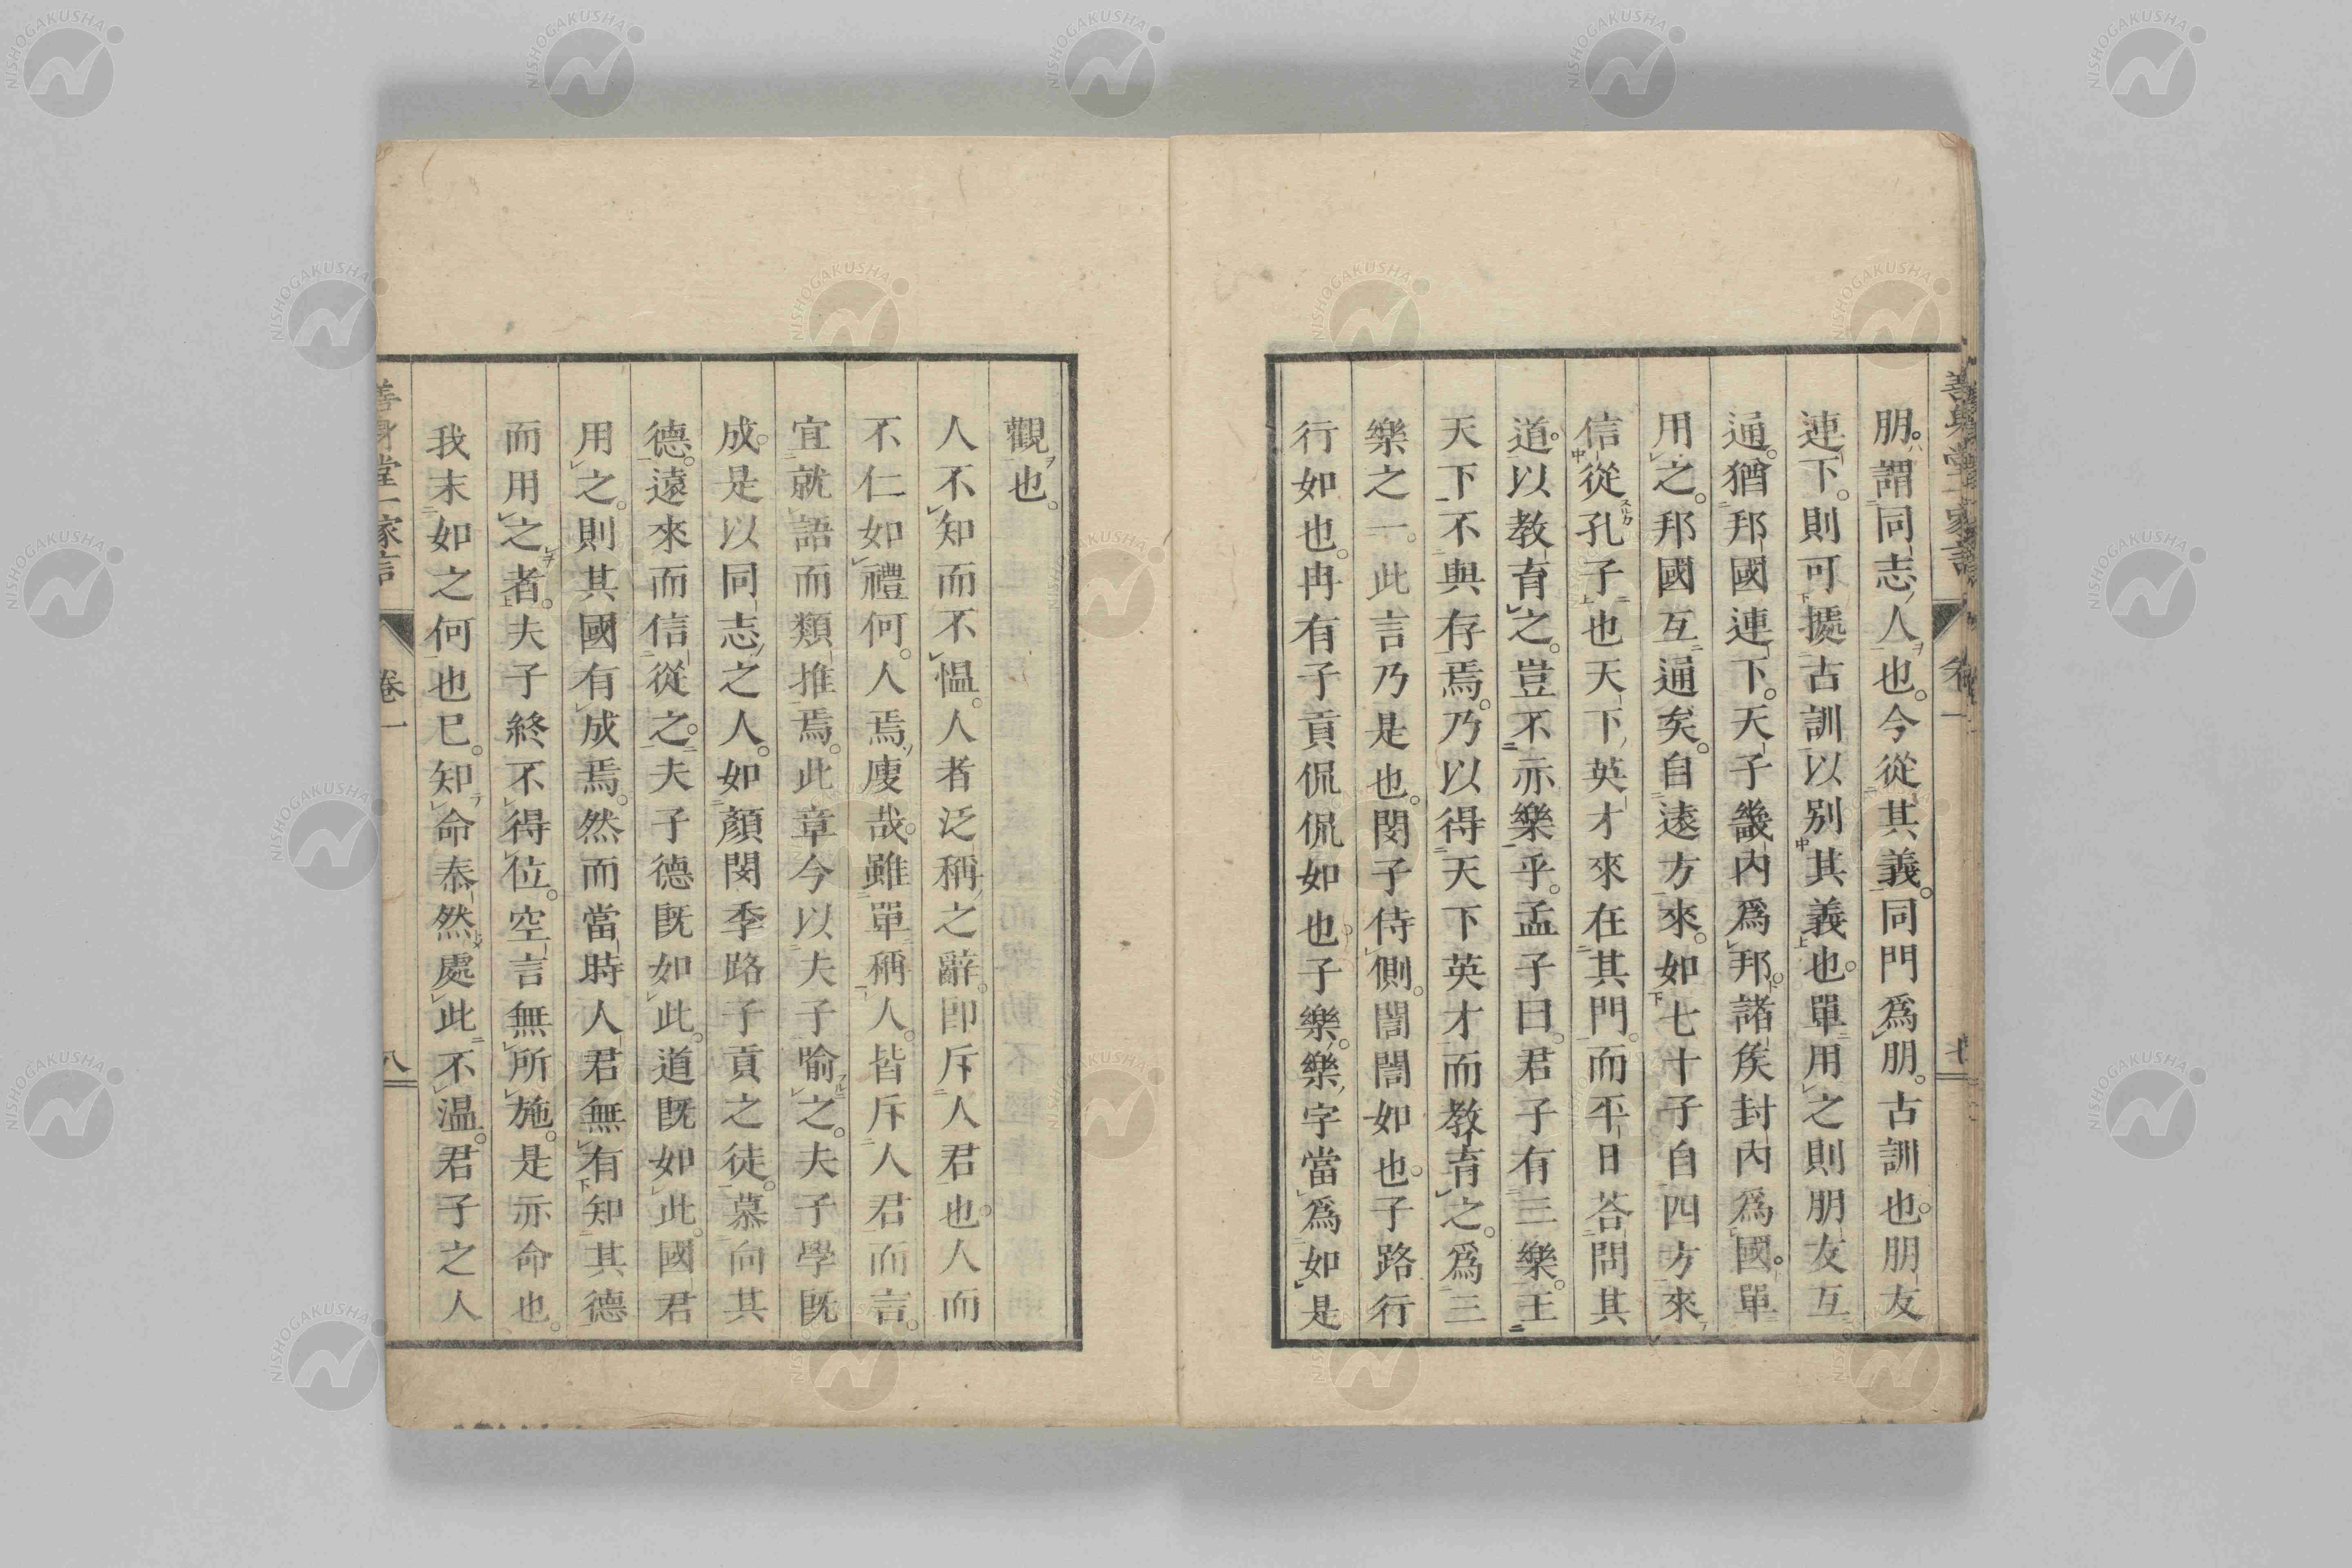 朋。謂同志人也。今從其義。同門爲朋。古訓也。朋友
連下。則可據古訓以別其義也。單用之則朋友互
通。猶邦國連下。天子畿内爲邦。諸矦封内爲國。單
用之。邦國互通矣。自遠方來。如七十子自四方來
信從孔子也天下英才來在其門。而平日荅問其
道。以教育之。豈不亦樂乎。孟子曰。君子有三樂。王
天下不與存焉。乃以得天下英才而教育之。爲三
樂之一。此言乃是也。閔子侍側。誾誾如也。子路行
行如也。冉有子貢侃侃如也。子樂。樂字當爲如是
觀也。
人不知而不慍。人者泛稱之辭。卽斥人君也。人而
不仁如禮何。人焉廋哉。雖單稱人。皆斥人君而言。
宜就語而類推焉。此章今以夫子喻之。夫子學旣
成。是以同志之人。如顔閔季路子貢之徒。慕向其
德。遠來而信從之。夫子德旣如此。道旣如此。國君
用之。則其國有成焉。然而當時人君無有知其德
而用之者。夫子終不得位。空言無所施。是亦命也。
我末如之何也已。知命泰然處此不慍。君子之人
善身堂一家言
卷一
八